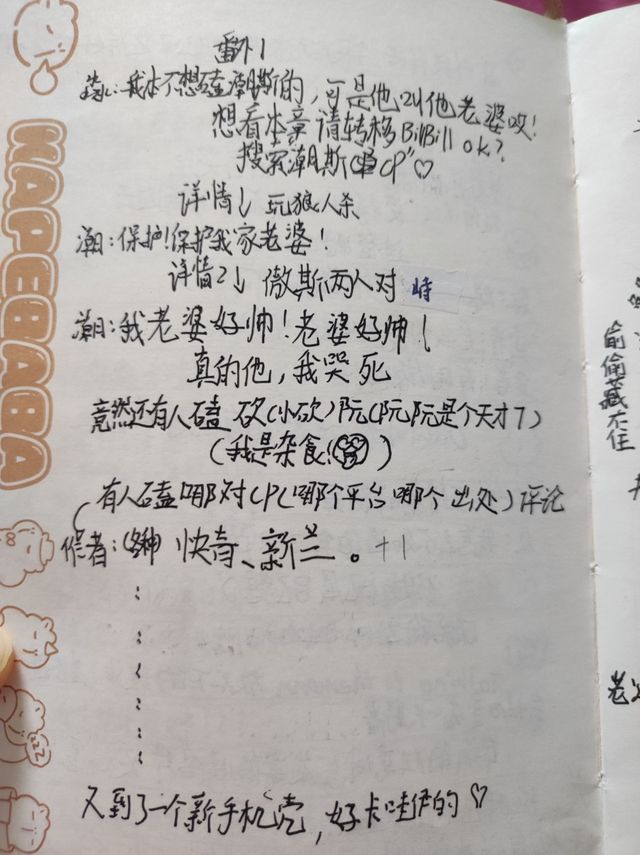 番外1
我本不想磕潮斯的，可是他叫他老婆哎！
想看本章请转移BilBill ok？
搜索潮斯"CP"♡
详情1 玩狼人杀
潮：保护！保护我家老婆！
详情2↓ 傲斯两人对峙
潮：我老婆好帅！老婆好帅！
真的他，我哭死
竟然还有人磕 砍（小砍）阮（阮阮是个天才7）
（我是杂食！）
有人磕哪对CP（哪个平台哪个出处）评论
作者： 快青、新兰。+1
又到了一个新手机壳，好卡哇伊的♡
KAPEBABA
偷偷藏不住